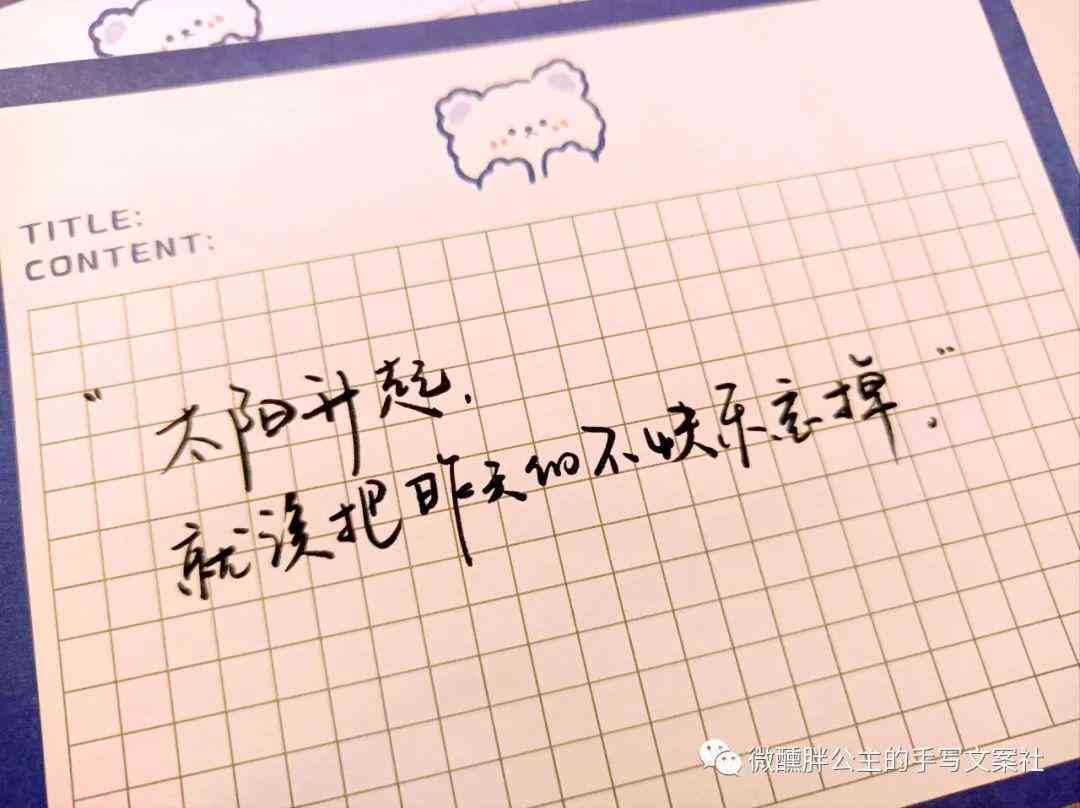 TITLE:
CONTENT:
“太阳升起.
就该把昨天的不快乐忘掉。”
微醺胖公主的手写文案社